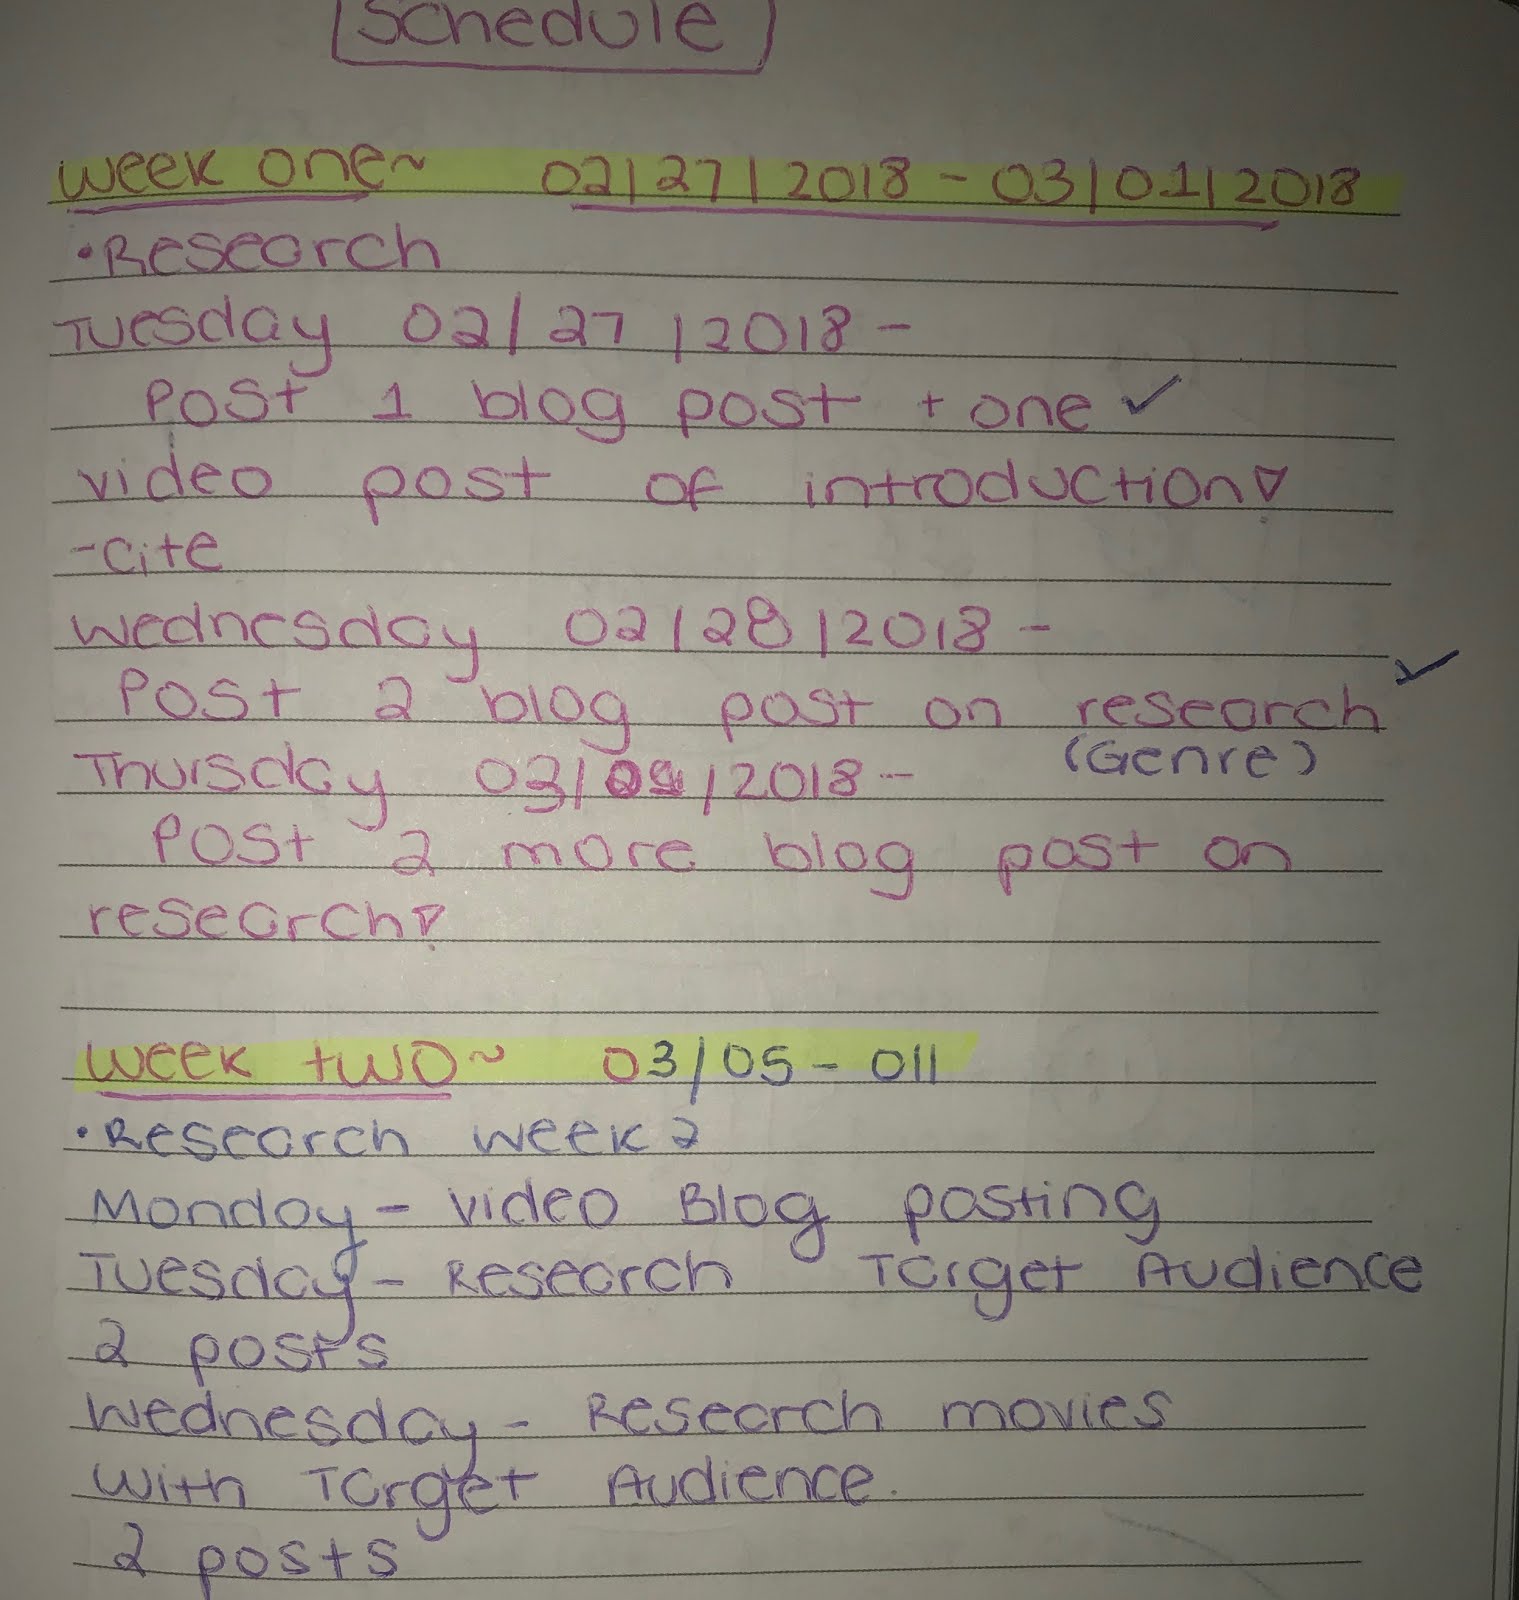 Schedule
Week one~ 02/27/2018 - 03/01/2018
•Research
Tuesday 02/27/2018-
Post 1 blog post + one ✓
video post of introduction!
-cite
Wednesday 02/28/2018-
Post 2 blog post on research ✓
(Genre)
Thursday 03/01/2018-
Post 2 more blog post on
research!
Week two~ 03/05-011
•Research week 2
Monday- video Blog posting
Tuesday- Research Target Audience
2 posts
Wednesday- Research movies
with Target Audience.
2 posts